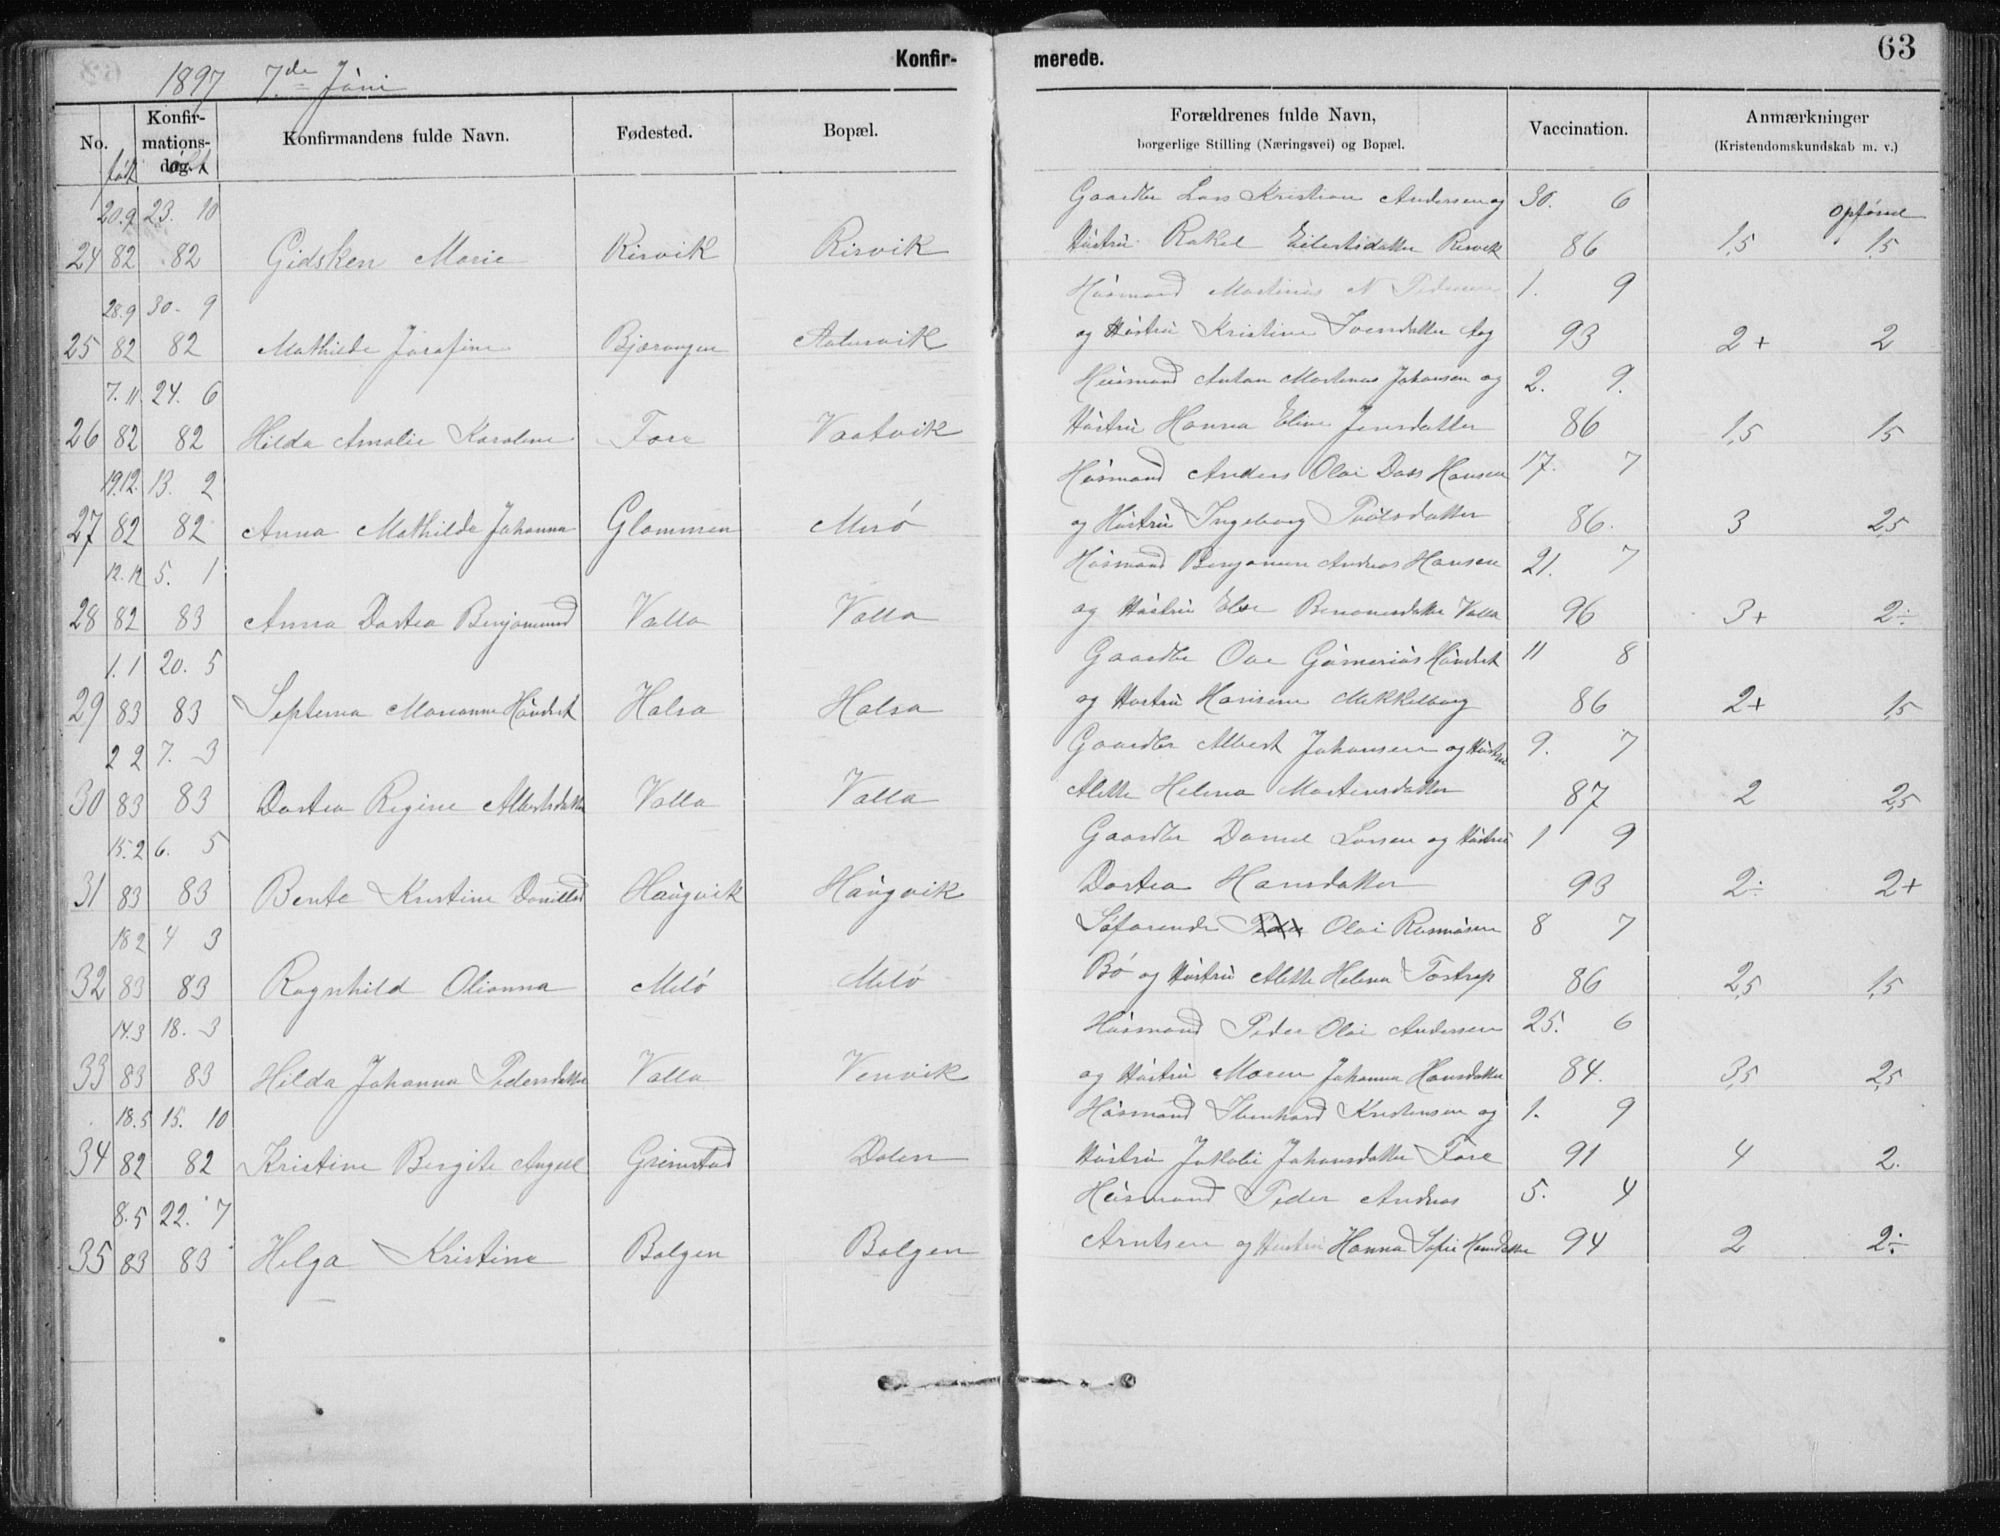 63
Konfir- merede.
1897 7.de Júni
No.
født
Konfir-
mations-
dag.
Konfirmandens fulde Navn.
Fødested.
Bopæl.
Forældrenes fulde Navn,
borgerlige Stilling (Næringsvei) og Bopæl.
Vaccination.
Anmærkninger
(Kristendomskundskab m. v.)
20.9 23. 10 Gaardbr Lars Kristian Andersen og 30. 6 Opførsel
24 82 82 Gidsken Marie Risvik Risvik Hústrú Rakel Eilertsdatter Risvik 86 1,5 1,5
28.9 30. 9 Húsmand Martinús N Pedersen 1. 9
25 82 82 Mathilde Josefine Bjærangen og Hústrú Kristine Iversdatter Aag 93 2+ 2
7.11 24. 6 Húsmand Anton Martenas Johansen og 2. 9.
26 82 82 Hilda Amalie Karoline Fore Vaatvik Hústrú Hanna Eline Jensdatter 86 1,5 1,5
19.12. 13. 2 Húsmand Anders Olai Dass Hansen 17. 7
27 82 82 Anna Mathilde Johanna Glommen Melø og Hústrú Ingeborg Poúlsdatter 86. 3 2,5
12.12 5. 1 Húsmand Benjamin Andreas Hansen 21. 7
28 82 83 Anna Dortea Benjaminsd Valla Valla og Hústrú Else Benonersdatter Valla 96 3+ 2÷
1.1 20. 5 Gaardbr Ove Gúnerius Húndst 11 8
29 83 83 Septema Marianne Húndst Halsa Halsa og Hústrú Hansine Mekkelborg 86 2+ 1,5
2 2 7. 3 Gaardbr Albert Johansen og Hústrú 9. 7
30 83 83 Dortea Regine Albertsdatter Valla Valla Alette Helena Martinsdatter 87 2 2,5
15.2 6. 5 Gaardbr Daniel Larsen og Hústrú 1 9
31 83 83 Bente Kristine Danielsd Haúgvik Haúgvik Dortea Hansdatter 93 2÷ 2+
18 2 4 3 Søfarende Olai Rasmúsen 8 7
32 83 83 Ragnhild Olianna Melø Melø Bø og Hústrú Alette Helena Tostrup 86 2,5 1,5
14.3 18. 3 Húsmand Peder Olai Andersen 25. 6
33 83 83 Hilda Johanna Pedersdatter Valla Venvik og Hústrú Maren Johanna Hansdatter 84. 3,5 2,5
18.5 15. 10 Húsmand Ibenhard Kristensen og 1. 9
34 82 82 Kristine Bergite Angell Grimstad Dalen Hústrú Jakobi Johansdatter Fore 91 4 2.
8.5 22. 7 Húsmand Peder Andreas 5. 4
35 83 83 Helga Kristine Bolgen Bolgen Arntsen og Hústrú Hanna Sofie Hansdatter 94 2 2÷